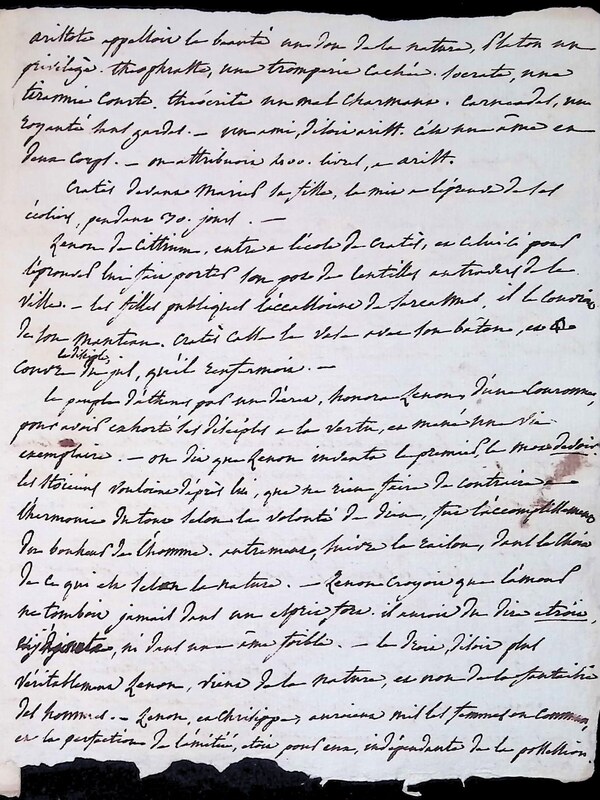 aristote appelloit la beauté un don de la nature, Platon un
privilège. theophraste, une tromperie cachée. Socrate, une
tirannie courte. théocrite un mal charmant. Carneades, une
royauté sans gardes. — un ami, disoit arist. c'est une âme en
deux corps. — on attribuoit 400. livres, a arist.
Cratès devant marier sa fille, la mit a l'épreuve de ses
écoliers, pendant 30. jours. —
Zenon de Cittium, entre a l'école de Cratès, et celui ci pour
l'éprouver lui fit porter son pot de lentilles au travers de la
ville. — les filles publiques l'accabloient de sarcasmes, il le couvrit
de son manteau. Cratès casse le vase avec son bâton, et
le disciple,
couvre du jus, qu'il renfermoit. —
le peuple d'athenes par un décret, honora Zenon, d'une couronne,
pour avoir exhorté ses disciples a la vertu, et mené une vie
exemplaire. — on dit que Zenon inventa le premier le mot devoir.
les stoiciens vouloient d'après lui, que ne rien faire de contraire a
l'harmonie du tout selon la volonté de dieu, fut l'accomplissement
du bonheur de l'homme. autrement, suivre la raison, dans le choix
de ce qui est selon la nature. — Zenon croyoit que l'amour
ne tomboit jamais dans un esprit fort. il auroit du dire etroit,
ni dans une âme foible. — le droit, disoit plus
véritablement Zenon, vient de la nature, et non de la fantaisie
des hommes. — Zenon, et Chrisippe, auroient mis les femmes en commun,
et la perfection de l'amitié, etoit pour eux, indépendante de la possession.